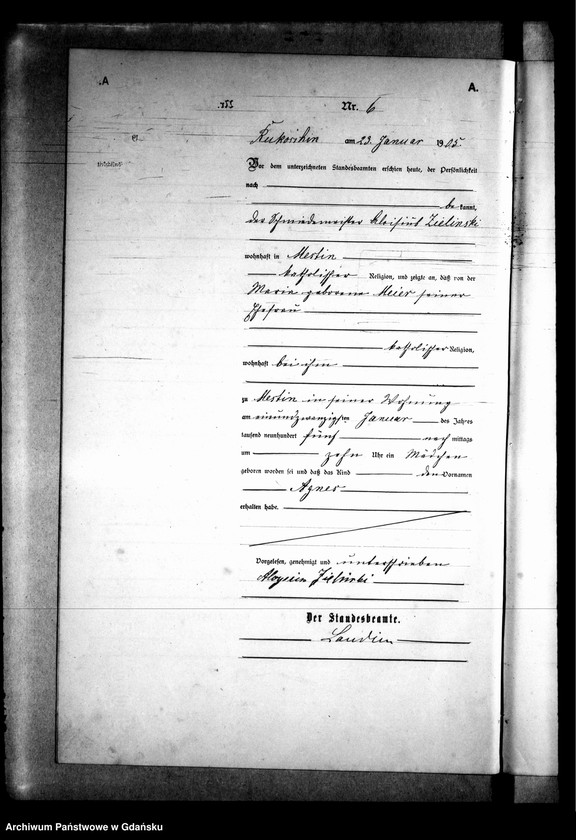 A.
A.
Nr. 6
Kukoschin am 23. Januar 1905.
Vor dem unterzeichneten Standesbeamten erschien heute, der Persönlichkeit
nach
bekannt,
der Schmiedemeister Aloisius Zielinski
wohnhaft in Mestin
katholischer Religion, und zeigte an, daß von der
Maria geborene Meier seiner
Ehefrau
katholischer Religion,
wohnhaft bei ihm
zu Mestin in seiner Wohnung
am einundzwanzigsten Januar des Jahres
tausend neunhundert fünf nach mittags
um zehn Uhr ein Mädchen
geboren worden sei und daß das Kind den Vornamen
Agnes
erhalten habe.
Vorgelesen, genehmigt und unterschrieben
Aloysius Zielinski
Der Standesbeamte.
Archiwum Państwowe w Gdańsku